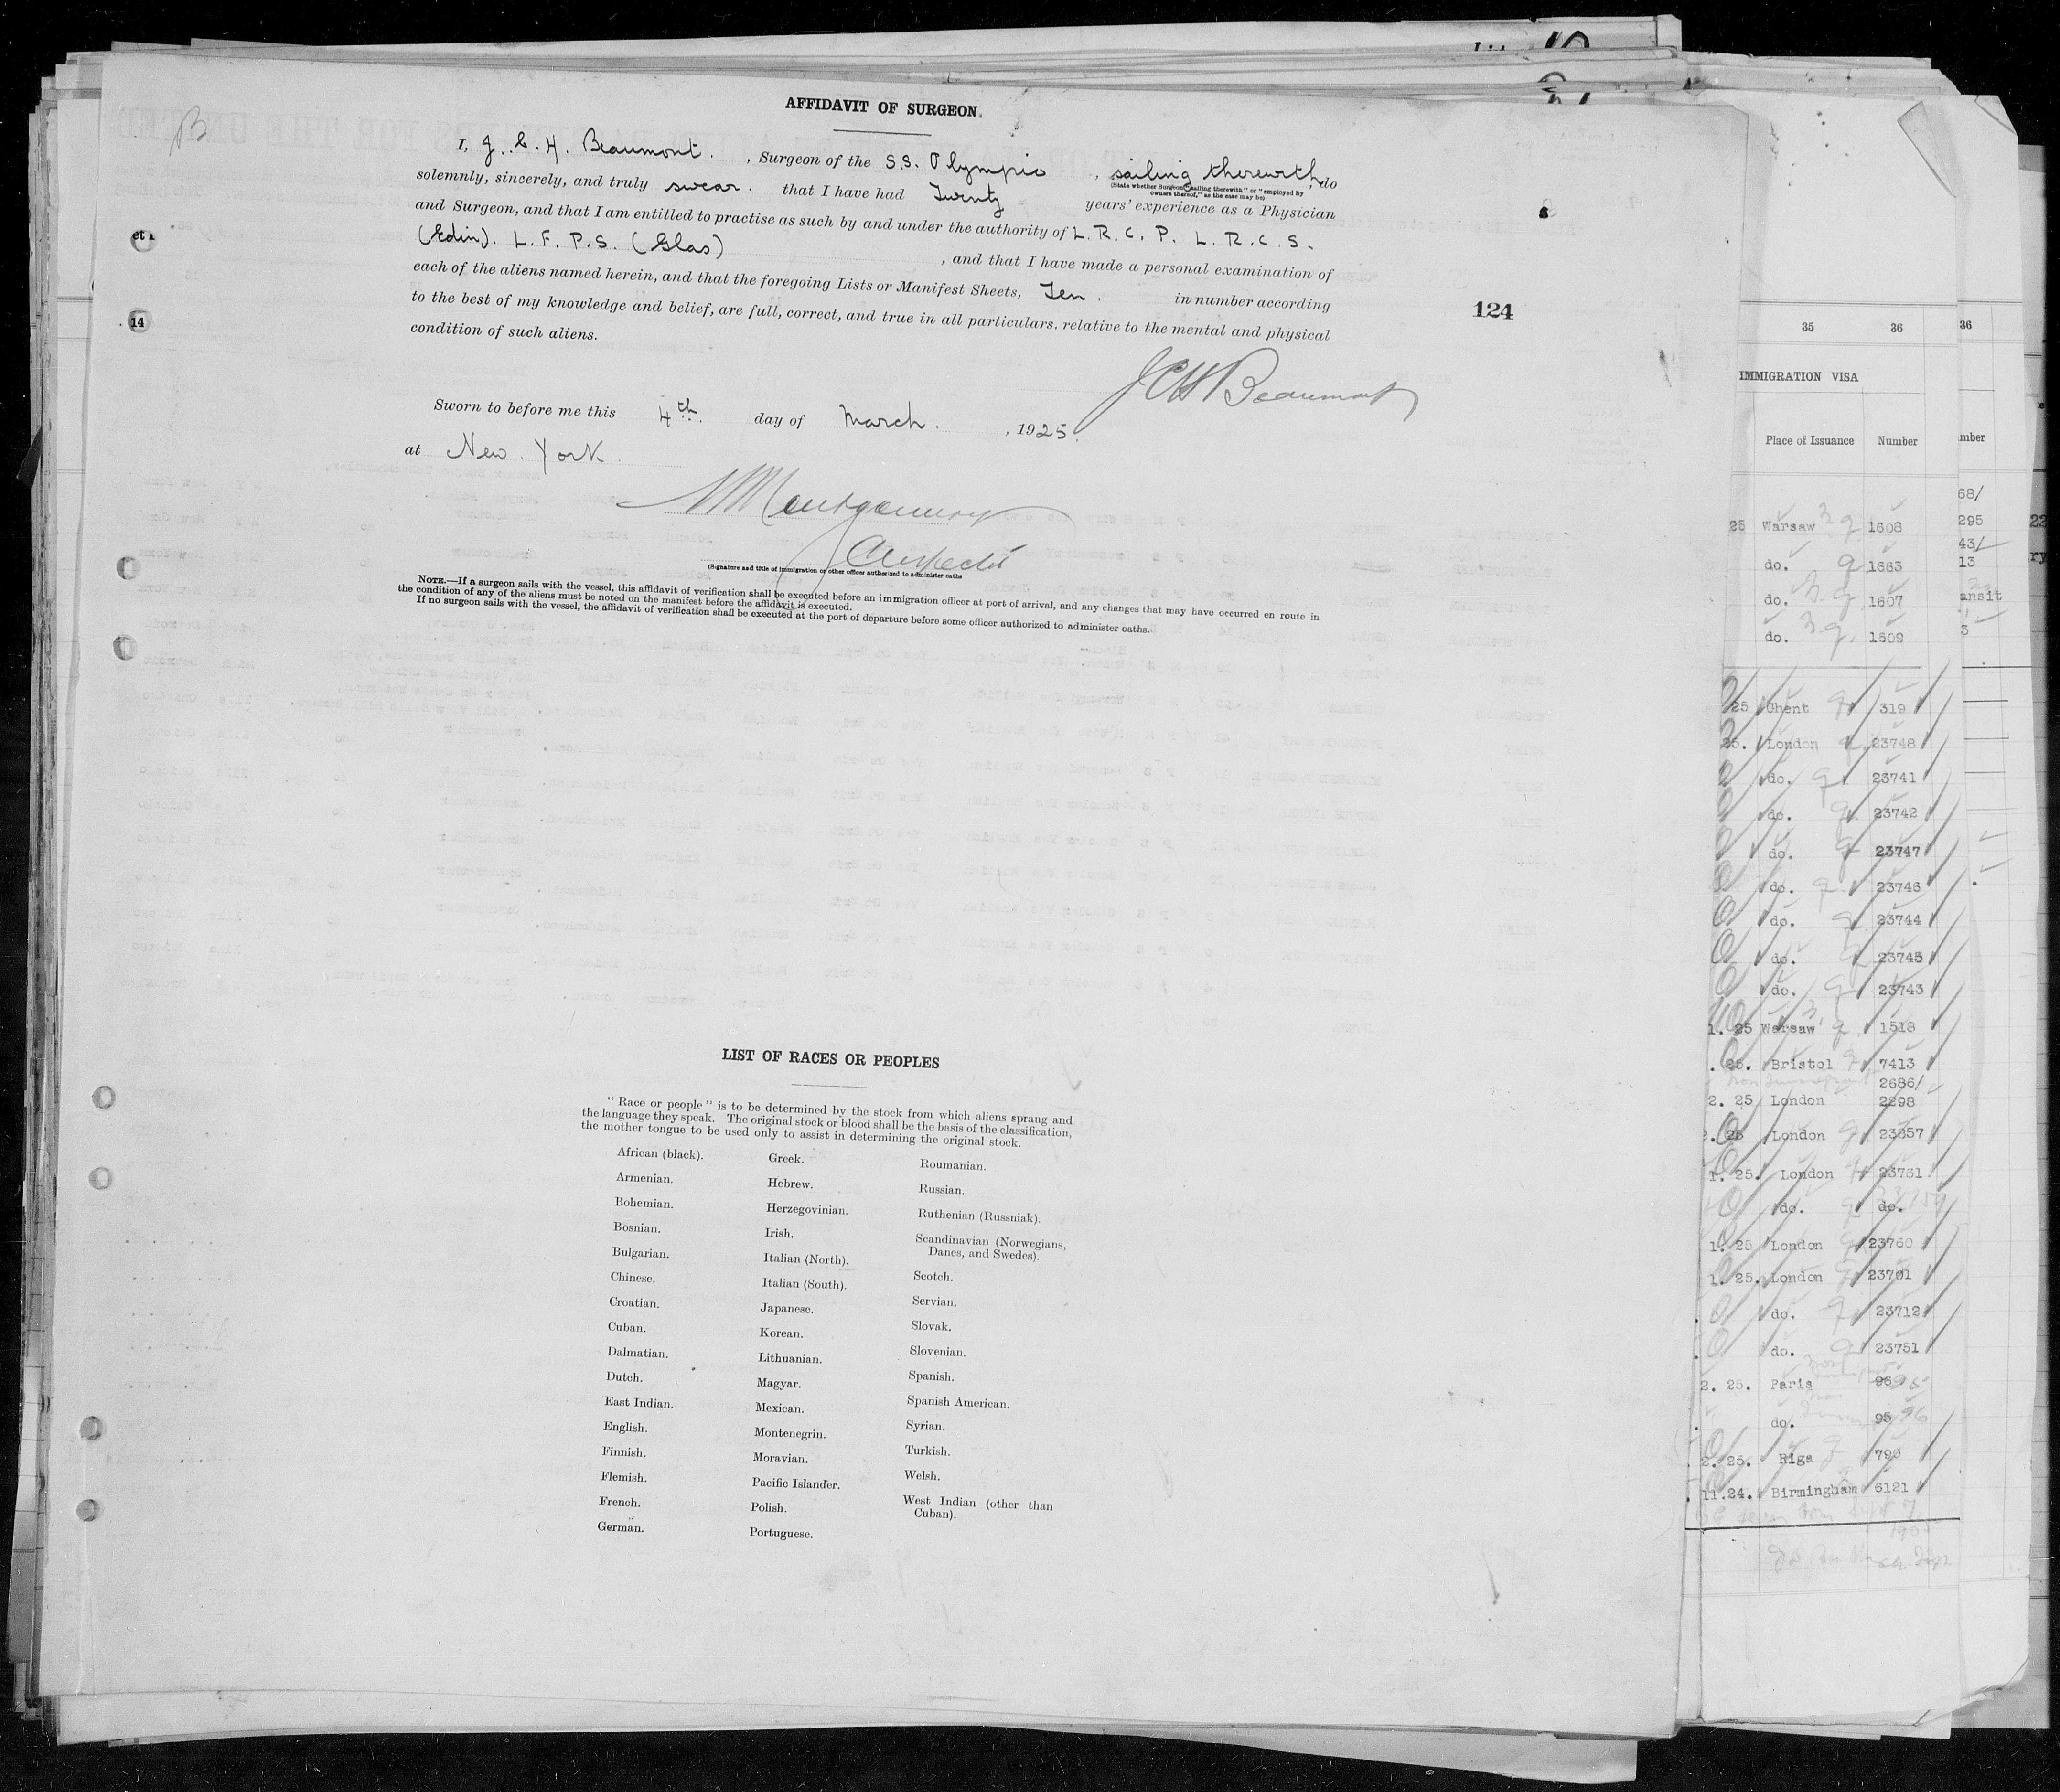 AFFIDAVIT OF SURGEON.
B
I, J. C. H. Beaumont. , Surgeon of the S.S. Olympic , sailing therewith, do
(State whether Surgeon "sailing therewith" or "employed by
owners thereof," as the case may be)
solemnly, sincerely, and truly swear. that I have had Twenty years' experience as a Physician
and Surgeon, and that I am entitled to practise as such by and under the authority of L. R. C. P. L. R. C. S.
(Edin). L. F. P. S. (Glas) , and that I have made a personal examination of
each of the aliens named herein, and that the foregoing Lists or Manifest Sheets, Ten. in number according
to the best of my knowledge and belief, are full, correct, and true in all particulars, relative to the mental and physical
condition of such aliens.
124
14
JCH Beaumont
Sworn to before me this 4th. day of March. , 1925.
at New York
Montgomery
(Signature and title of immigration or other officer authorized to administer oaths
NOTE.—If a surgeon sails with the vessel, this affidavit of verification shall be executed before an immigration officer at port of arrival, and any changes that may have occurred en route in
the condition of any of the aliens must be noted on the manifest before the affidavit is executed.
If no surgeon sails with the vessel, the affidavit of verification shall be executed at the port of departure before some officer authorized to administer oaths.
LIST OF RACES OR PEOPLES
"Race or people" is to be determined by the stock from which aliens sprang and
the language they speak. The original stock or blood shall be the basis of the classification,
the mother tongue to be used only to assist in determining the original stock.
African (black).
Armenian.
Bohemian.
Bosnian.
Bulgarian.
Chinese.
Croatian.
Cuban.
Dalmatian.
Dutch.
East Indian.
English.
Finnish.
Flemish.
French.
German.
Greek.
Hebrew.
Herzegovinian.
Irish.
Italian (North).
Italian (South).
Japanese.
Korean.
Lithuanian.
Magyar.
Mexican.
Montenegrin.
Moravian.
Pacific Islander.
Polish.
Portuguese.
Roumanian.
Russian.
Ruthenian (Russniak).
Scandinavian (Norwegians,
Danes, and Swedes).
Scotch.
Servian.
Slovak.
Slovenian.
Spanish.
Spanish American.
Syrian.
Turkish.
Welsh.
West Indian (other than
Cuban).
35 36
IMMIGRATION VISA
Place of Issuance Number
25 Warsaw 1608
do. 1663
do. 1607
do. 1609
25 Ghent 319
25. London 23748
do. 23741
do. 23742
do. 23747
do. 23746
do. 23744
do. 23745
do. 23743
1. 25 Warsaw 1518
25. Bristol 7413
2686/
2. 25 London 2298
25 London 23857
1. 25. London 23761
do. do.
1. 25 London 23760
1. 25. London 23701
do. 23712
do. 23751
2. 25. Paris 96 95
do. 95 96
2. 25. Riga 790
11.24. Birmingham 6121
36
68/
295
43/
13
ansit
3
22